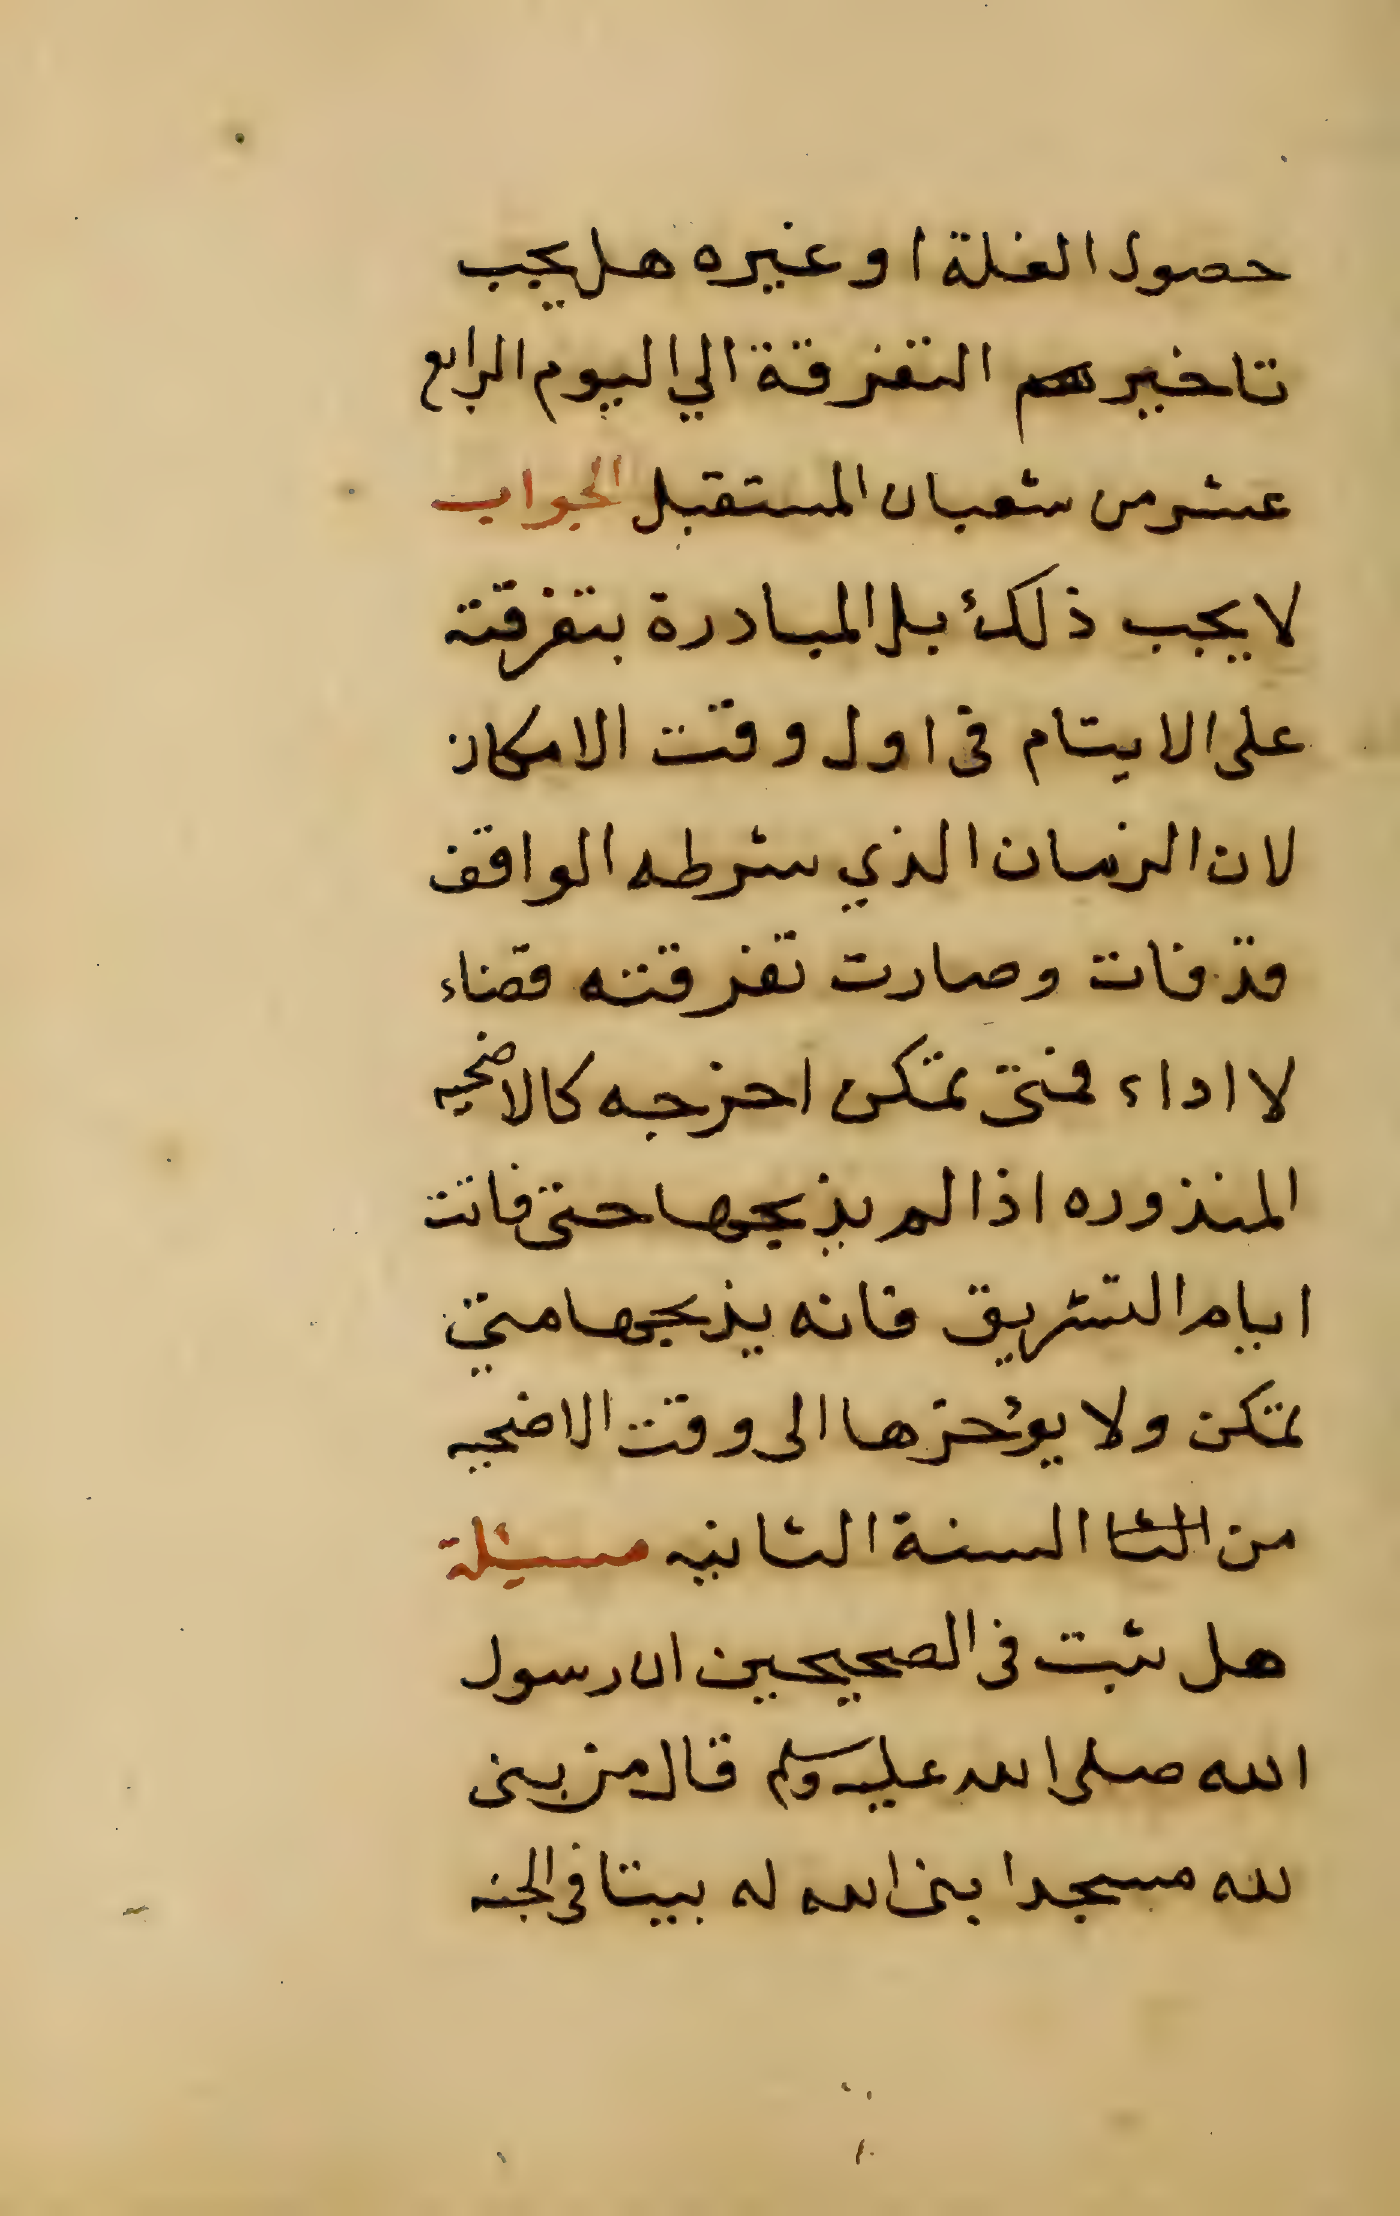 حصول الغلة او غيره هل يجب
تاخيرهم التفرقة الي اليوم الرابع
عشر من شعبان المستقبل الجواب
لا يجب ذلك بل المبادرة بتفرقته
على الايتام في اول وقت الامكان
لان الزمان الذي شرطه الواقف
قد فات وصارت تفرقته قضاء
لا اداء فمتى تمكن اخرجه كالاضحيه
المنذوره اذا لم يذبحها حتى فاتت
ايام التشريق فانه يذبحها متي
تمكن ولا يؤخرها الى وقت الاضحيه
من الثا السنة الثانيه مسئلة
هل ثبت في الصحيحين ان رسول
الله صلى الله عليه وسلم قال من بنى
لله مسجدا بنى الله له بيتا في الجنه